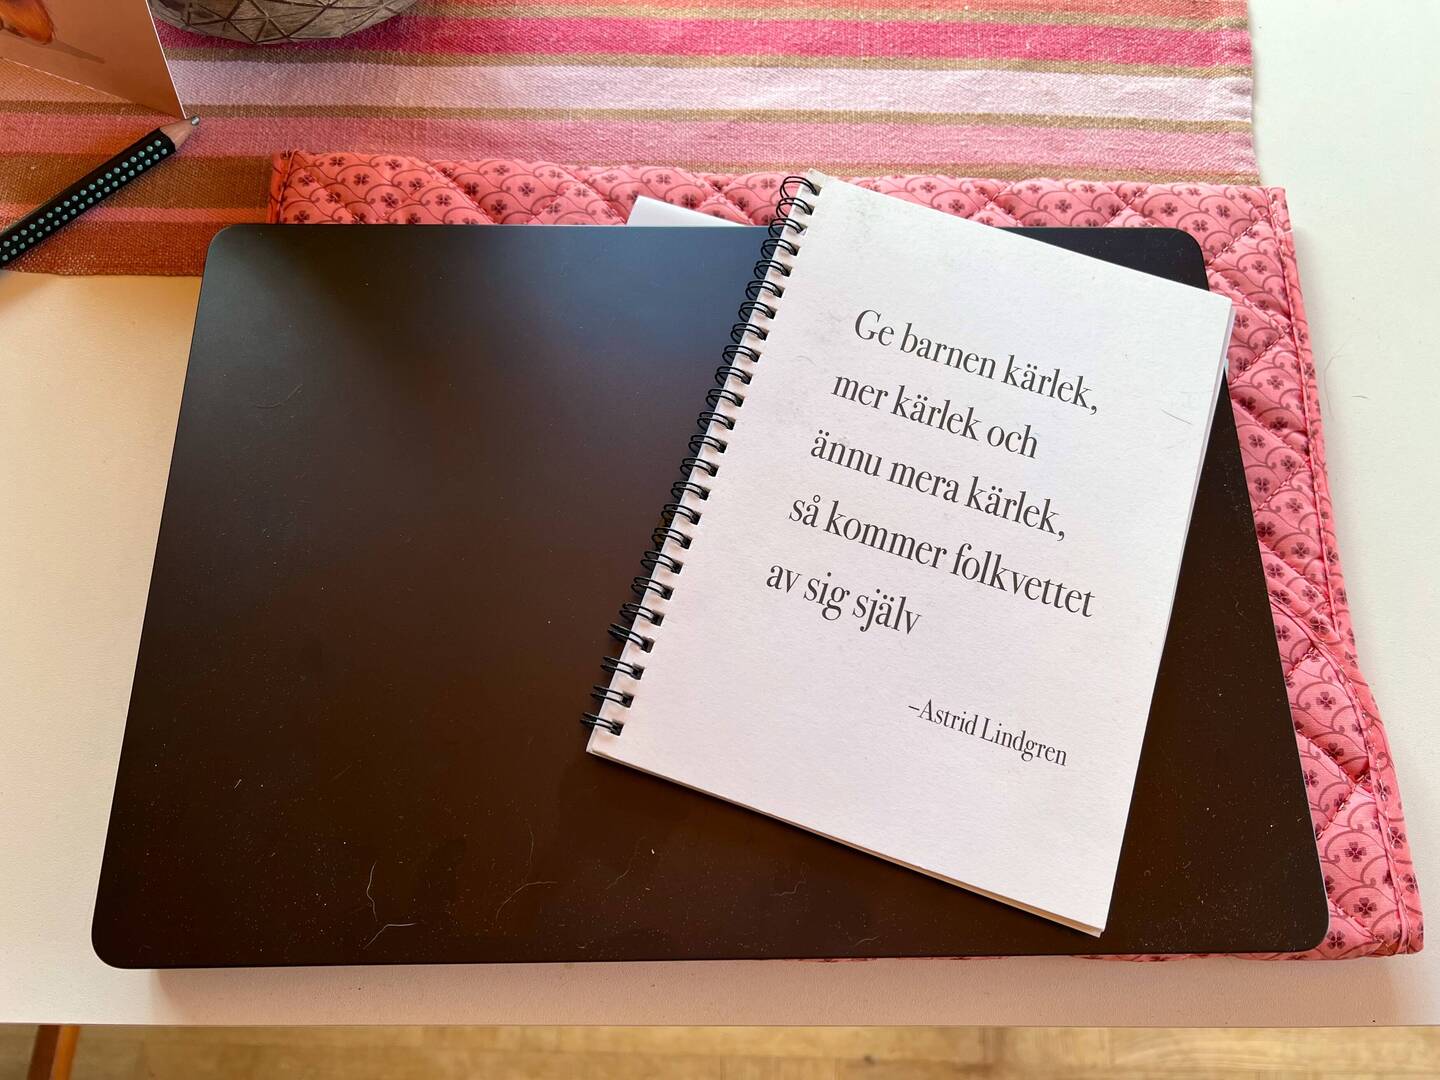 Ge barnen kärlek,
mer kärlek och
ännu mera kärlek,
så kommer folkvettet
av sig själv
–Astrid Lindgren